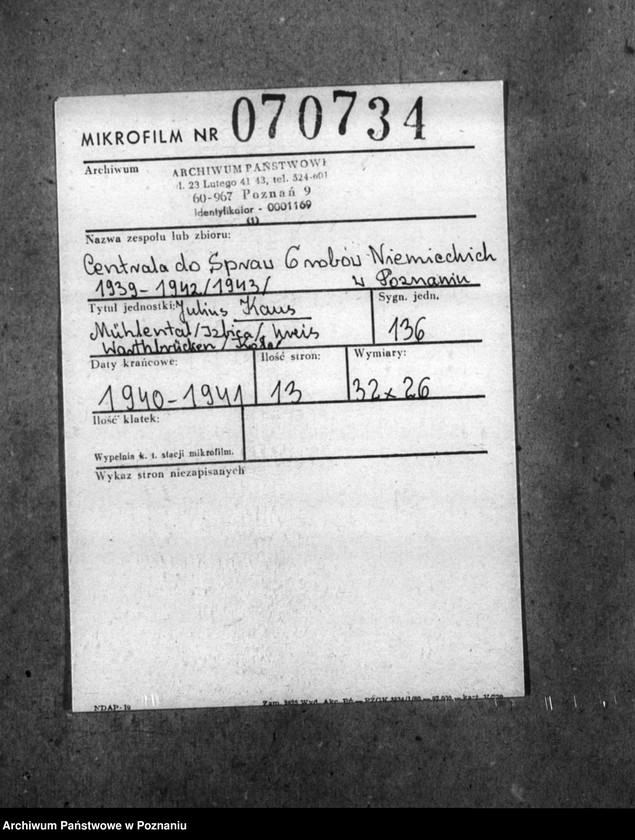 MIKROFILM NR 070734
Archiwum
ARCHIWUM PAŃSTWOWE
ul. 23 Lutego 41/43, tel. 524-601
60-967 Poznań 9
Identyfikator - 0001169
(1)
Nazwa zespołu lub zbioru:
Centrala do Spraw Grobów Niemieckich
1939-1942/1943/ w Poznaniu
Tytuł jednostki: Julius Kaus
Mühlental/Izbica/ kreis
Warthbrücken/Koło/
Sygn. jedn.
136
Daty krańcowe:
1940-1941
Ilość stron:
13
Wymiary:
32x26
Ilość klatek:
Wypełnia k. t. stacji mikrofilm.
Wykaz stron niezapisanych
NDAP-19
Archiwum Państwowe w Poznaniu